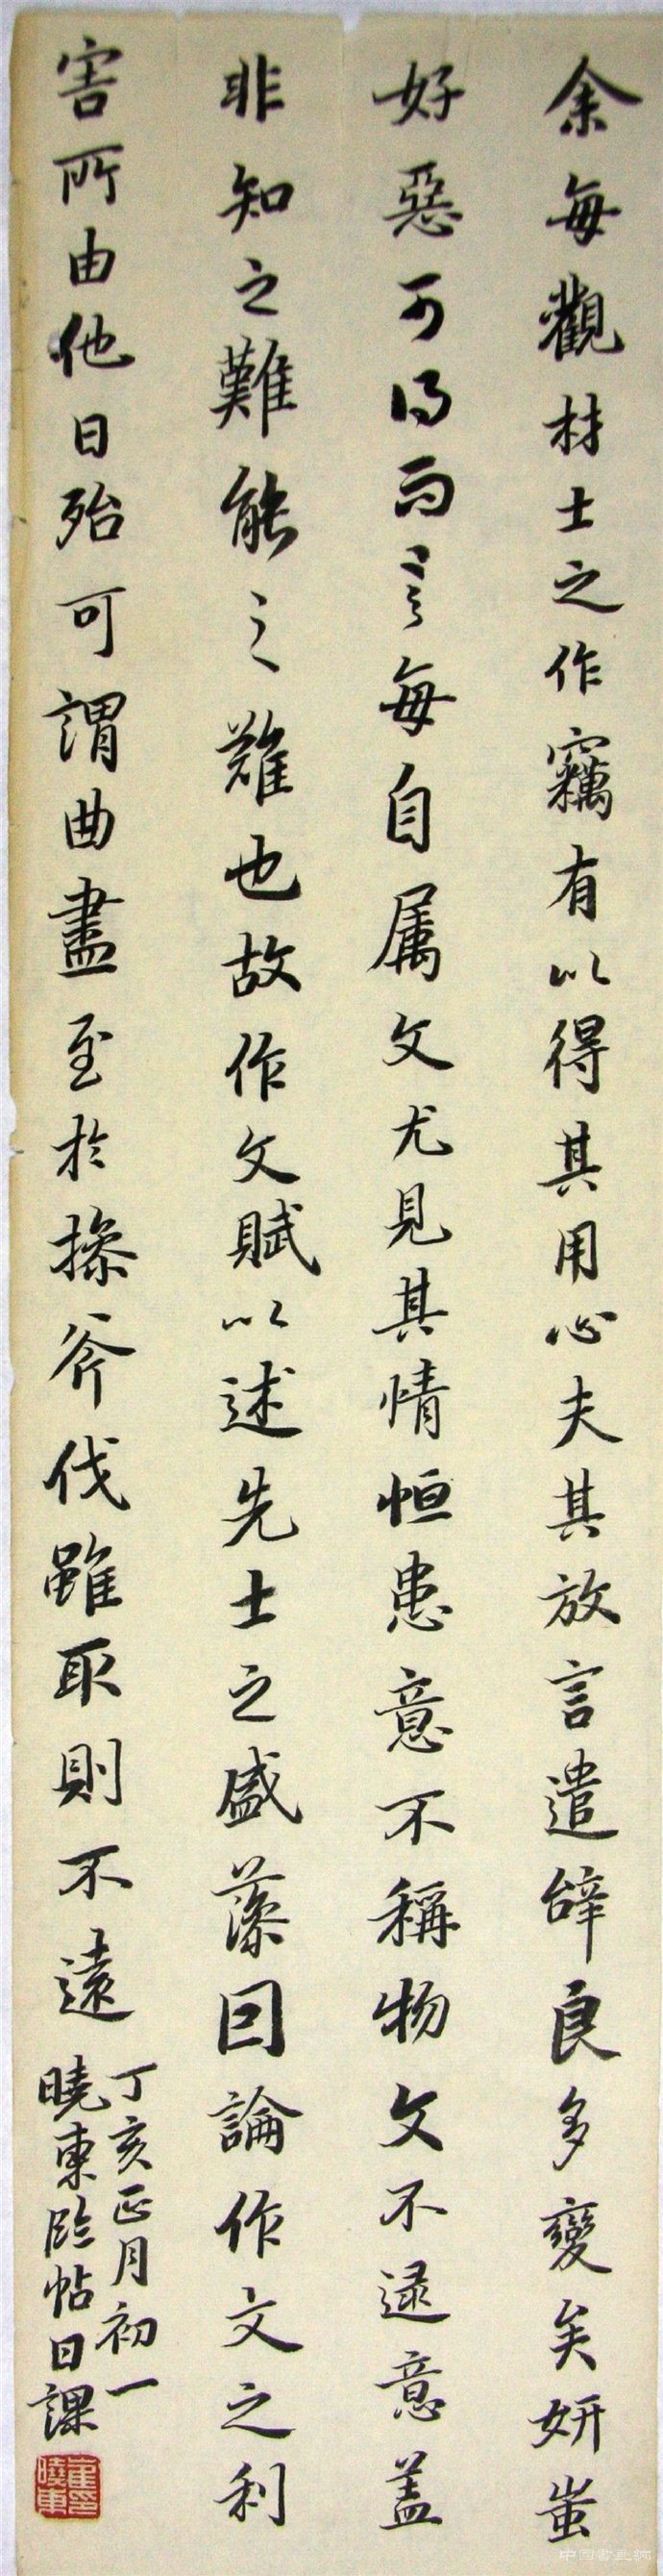 余每觀材士之作竊有以得其用心夫其放言遣辭良多變矣妍蚩
好惡可得而言每自属文尤見其情恒患意不稱物文不逮意盖
非知之難能之難也故作文賦以述先士之盛藻曰論作文之利
害所由他日殆可謂曲盡至於操斧伐雖取則不遠
丁亥正月初一
曉東臨帖日課
崔曉東印
中国書画網